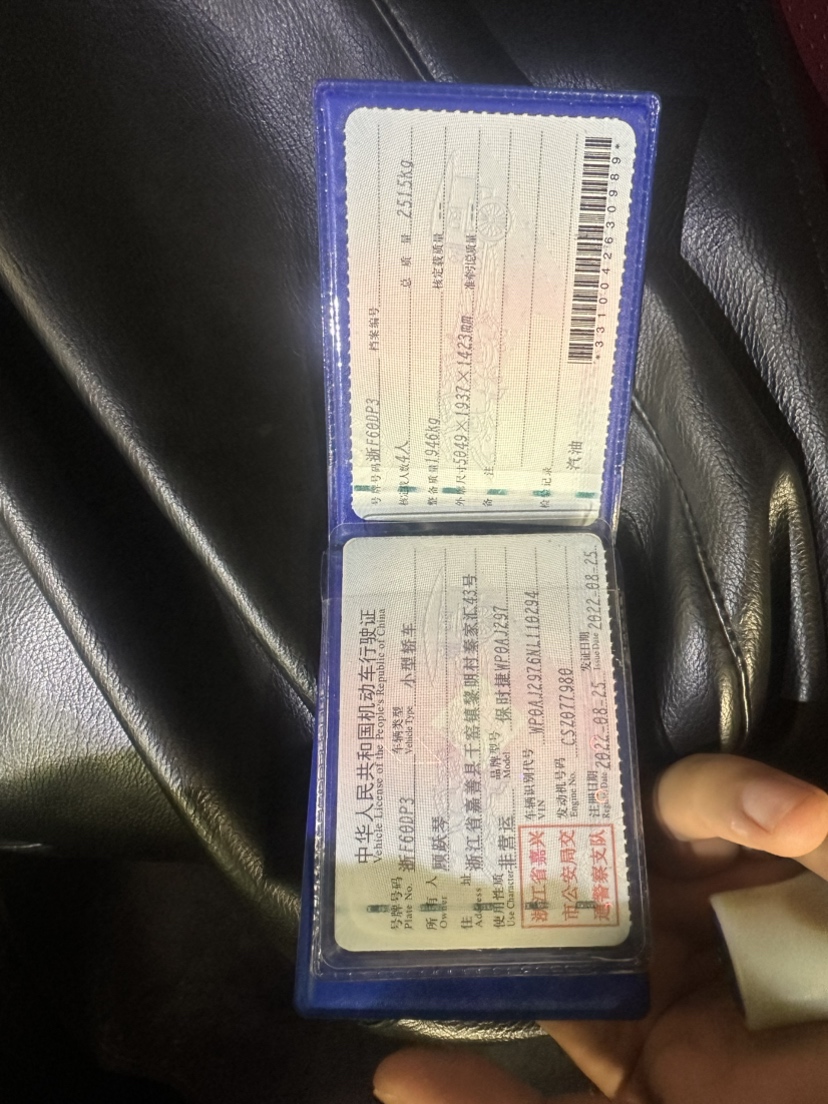 中华人民共和国机动车行驶证
Vehicle License of the People's Republic of China
号牌号码 浙F60DP3 车辆类型 小型轿车
Plate No. Vehicle Type
所有人 顾跃琴
Owner
住址 浙江省嘉善县干窑镇黎明村秦家汇43号
Address
使用性质 非营运 品牌型号 保时捷WP0AJ297
Use Character Model
浙江省嘉兴
市公安局交
通警察支队
车辆识别代号 WP0AJ2976NL110294
VIN
发动机号码 CSZ077980
Engine No.
注册日期 2022-08-25 发证日期 2022-08-25
Register Date Issue Date
号牌号码 浙F60DP3 档案编号
核定载人数 4人 总质量 2515kg
整备质量 1946kg 核定载质量 --
外廓尺寸 5049×1937×1423mm 准牵引总质量 --
备注
检验记录
汽油
*3310042630989*